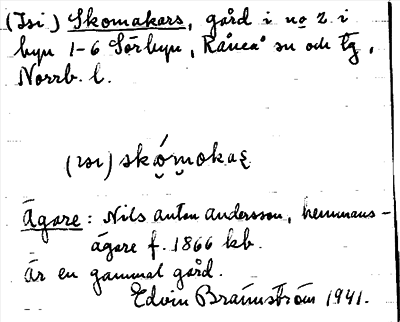 (Isi) Skomakars, gård i no 2 i
byn 1-6 Sörbyn, Råneå sn och tg,
Norrb. l.
(ısı) skómokaʂ
Ägare: Nils anton andersson, hemmans-
ägare f. 1866 kb.
Är en gammal gård.
Edvin Brännström 1941.